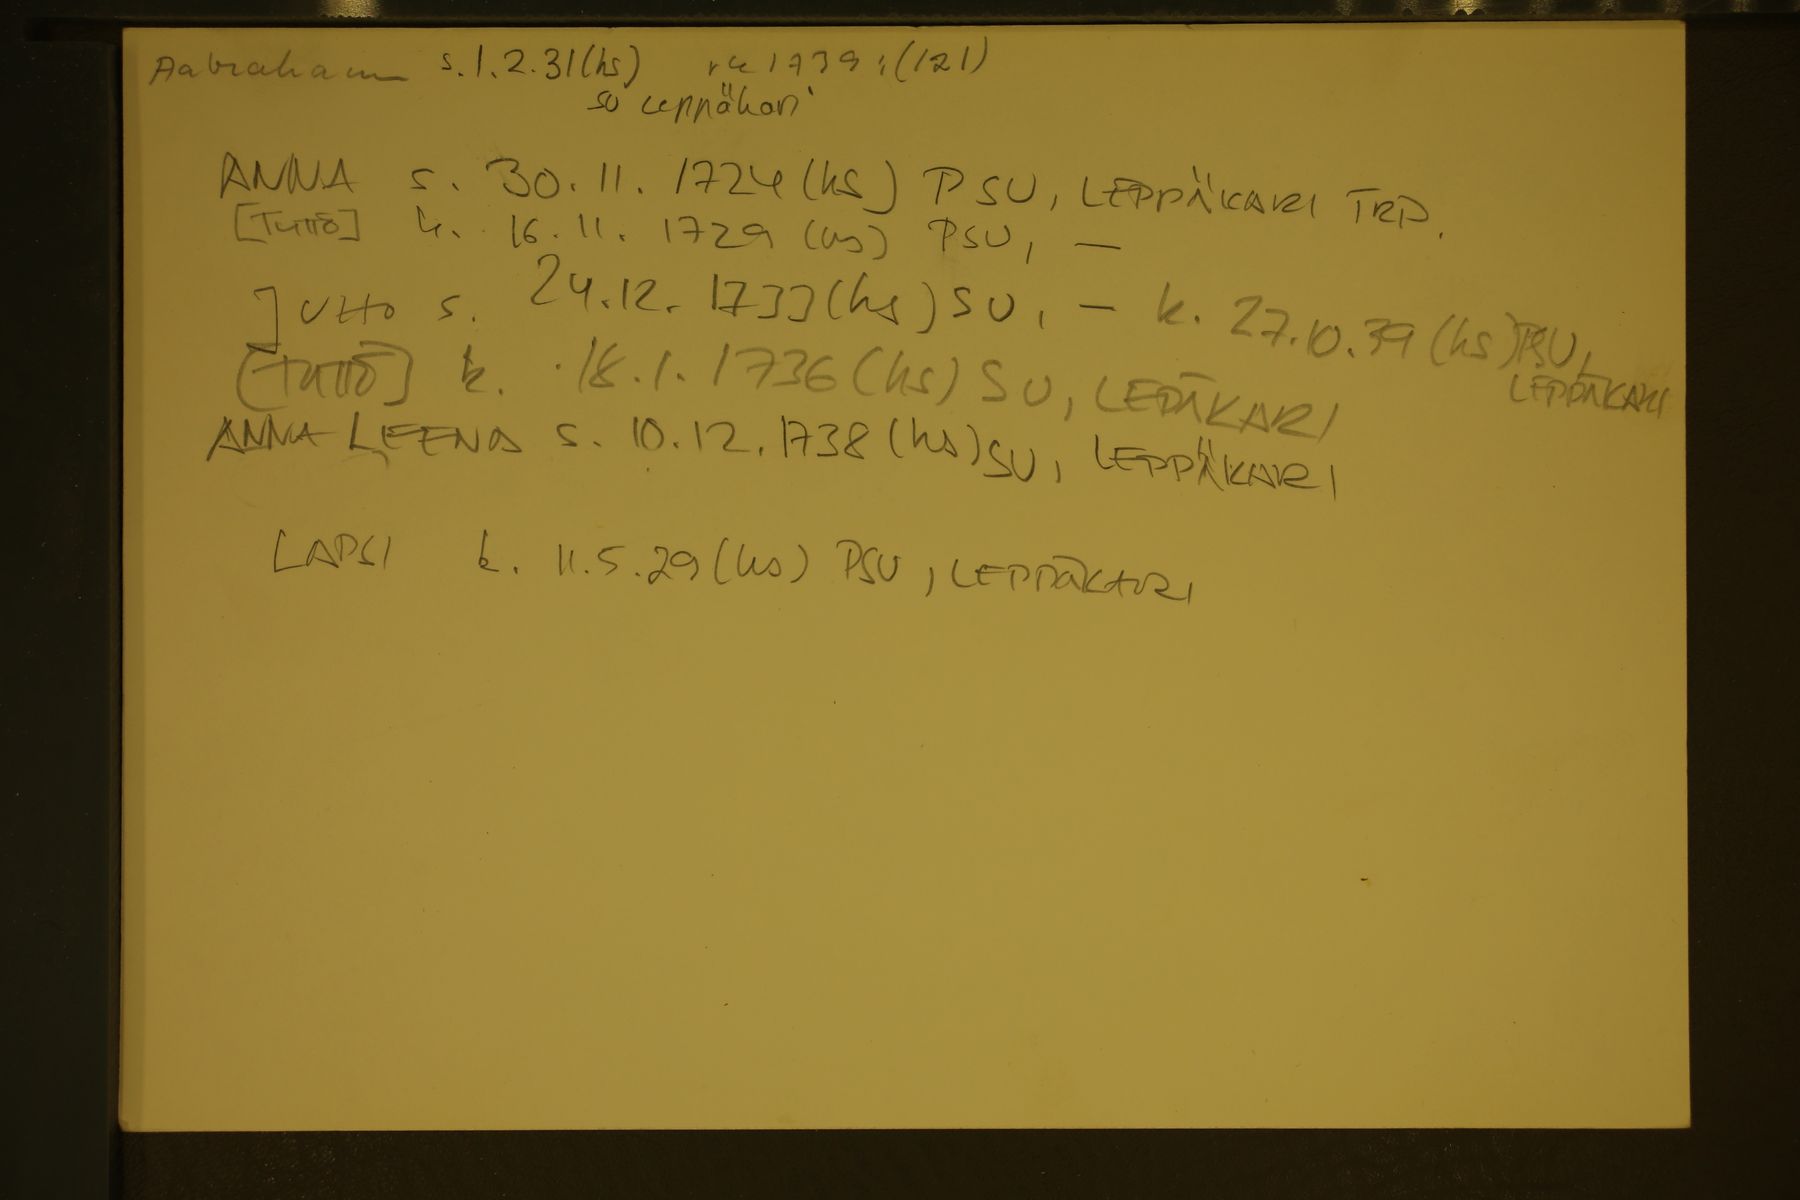 Aabraham s. 1.2.31 (hs) rk 1739: (121)
SU Leppäkari
ANNA s. 30.11.1724 (hs) PSU, LEPPÄKARI TRP.
[Tyttö] k. 16.11.1729 (hs) PSU, —
JUTTO s. 24.12.1733 (hs) SU, — k. 27.10.39 (hs) PSU, LEPPÄKARI
[TYTTÖ] k. 18.1.1736 (hs) SU, LEPÄKARI
ANNA LEENA s. 10.12.1738 (hs) SU, LEPPÄKARI
LAPSI k. 11.5.29 (hs) PSU, LEPPÄKARI